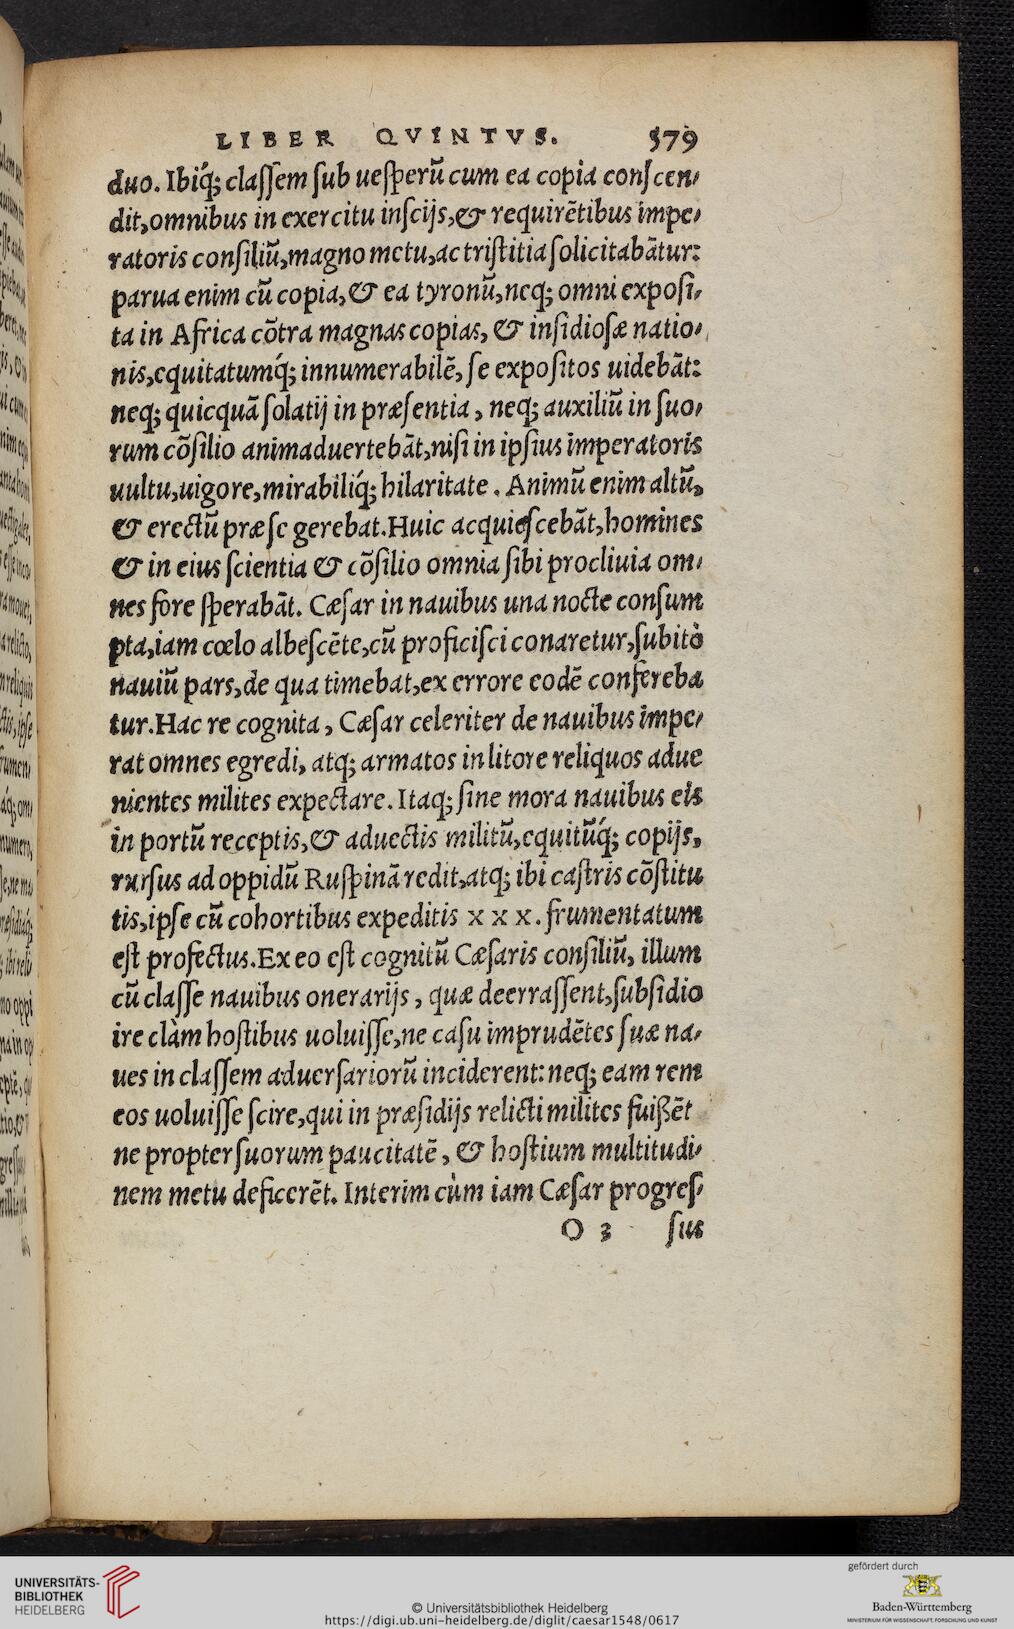 LIBER QVINTVS. 579
duo. Ibiq́; claſſem ſub ueſperũ cum ea copia conſcen-
dit, omnibus in exercitu inſcijs, & requirẽtibus impe-
ratoris conſiliũ, magno metu, ac triſtitia ſolicitabãtur:
parua enim cũ copia, & ea tyronũ, neq; omni expoſi-
ta in Africa cõtra magnas copias, & inſidioſæ natio-
nis, equitatumq́; innumerabilẽ, ſe expoſitos uidebãt:
neq; quicquã ſolatij in præſentia, neq; auxiliũ in ſuo-
rum cõſilio animaduertebãt, niſi in ipſius imperatoris
uultu, uigore, mirabiliq́; hilaritate. Animũ enim altũ,
& erectũ præ ſe gerebat. Huic acquieſcebãt, homines
& in eius ſcientia & cõſilio omnia ſibi procliuia om-
nes fore ſperabãt. Cæſar in nauibus una nocte conſum
pta, iam cœlo albeſcẽte, cũ proficiſci conaretur, ſubitò
nauiũ pars, de qua timebat, ex errore eodẽ confereba
tur. Hac re cognita, Cæſar celeriter de nauibus impe-
rat omnes egredi, atq; armatos in litore reliquos adue
nientes milites expectare. Itaq; ſine mora nauibus eis
in portũ receptis, & aduectis militũ, equitũq́; copijs,
rurſus ad oppidũ Ruſpinã redit, atq; ibi caſtris cõſtitu
tis, ipſe cũ cohortibus expeditis x x x. frumentatum
eſt profectus. Ex eo eſt cognitũ Cæſaris conſiliũ, illum
cũ claſſe nauibus onerarijs, quæ deerraſſent, ſubſidio
ire clàm hoſtibus uoluiſſe, ne caſu imprudẽtes ſuæ na-
ues in claſſem aduerſariorũ inciderent: neq; eam rem
eos uoluiſſe ſcire, qui in præſidijs relicti milites fuißẽt
ne propter ſuorum paucitatẽ, & hoſtium multitudi-
nem metu deficerẽt. Interim cùm iam Cæſar progreſ-
O 3 ſus
UNIVERSITÄTS-
BIBLIOTHEK
HEIDELBERG
© Universitätsbibliothek Heidelberg
https://digi.ub.uni-heidelberg.de/diglit/caesar1548/0617
gefördert durch
Baden-Württemberg
MINISTERIUM FÜR WISSENSCHAFT, FORSCHUNG UND KUNST